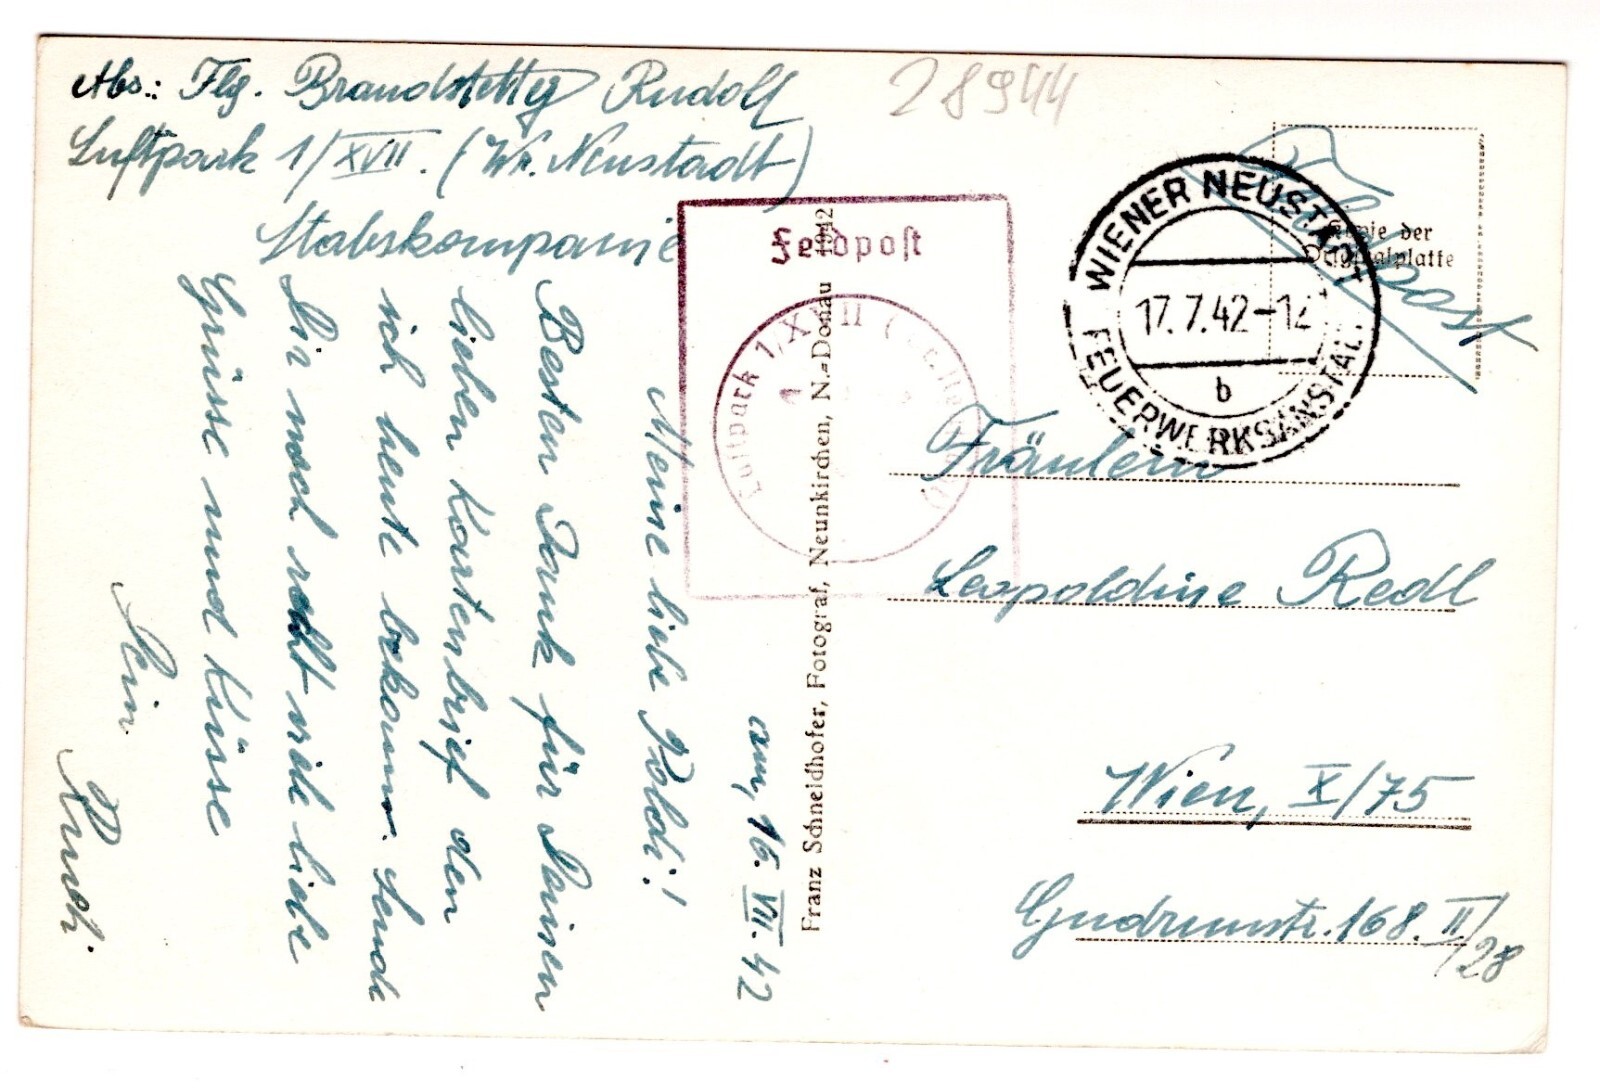 Abs.: Flg. Brandstetter Rudolf
Luftpark 1/XVII. (Wr. Neustadt)
Stabskompanie
28944
am, 16. VII. 42
Meine liebe Poldi!
Besten Dank für Deinen
lieben Kartenbrief den
ich heute bekamm. Sende
Dir noch recht viele liebe
Grüsse und Küsse
Dein
Rudi.
Feldpost
Luftpark 1/XVII
Franz Schneidhofer, Fotograf, Neunkirchen, N.-Donau 1942
Kopie der
Originalplatte
Feldpost
WIENER NEUSTADT
17.7.42-12
b
FEUERWERKSANSTALT
Fräulein
Leopoldine Redl
Wien, X/75
Gudrunstr. 168. II/28